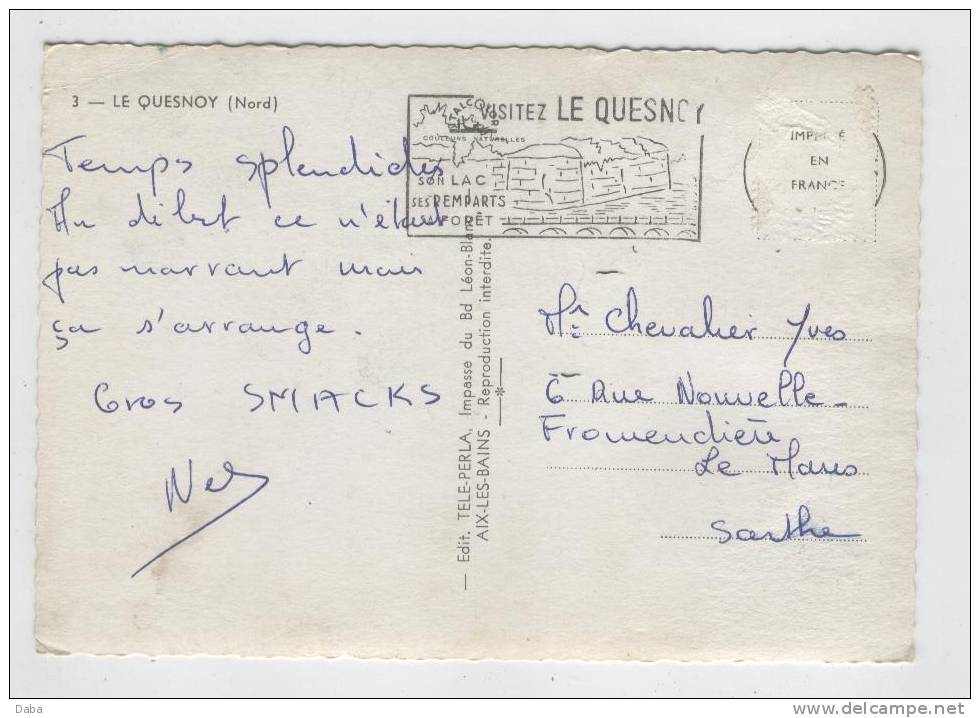 3 — LE QUESNOY (Nord)
Temps splendides
Au début ce n'était
pas marrant mais
ça s'arrange.
Gros SMACKS
VISITEZ LE QUESNOY
COULEURS NATURELLES
SON LAC
SES REMPARTS
SA FORÊT
IMPRIMÉ
EN
FRANCE
— Edit. TELE-PERLA, Impasse du Bd Léon-Blanc
AIX-LES-BAINS - Reproduction interdite.
Mr Chevalier Yves
6 Rue Nouvelle-
Fromendière
Le Mans
Sarthe
Daba
www.delcampe.net